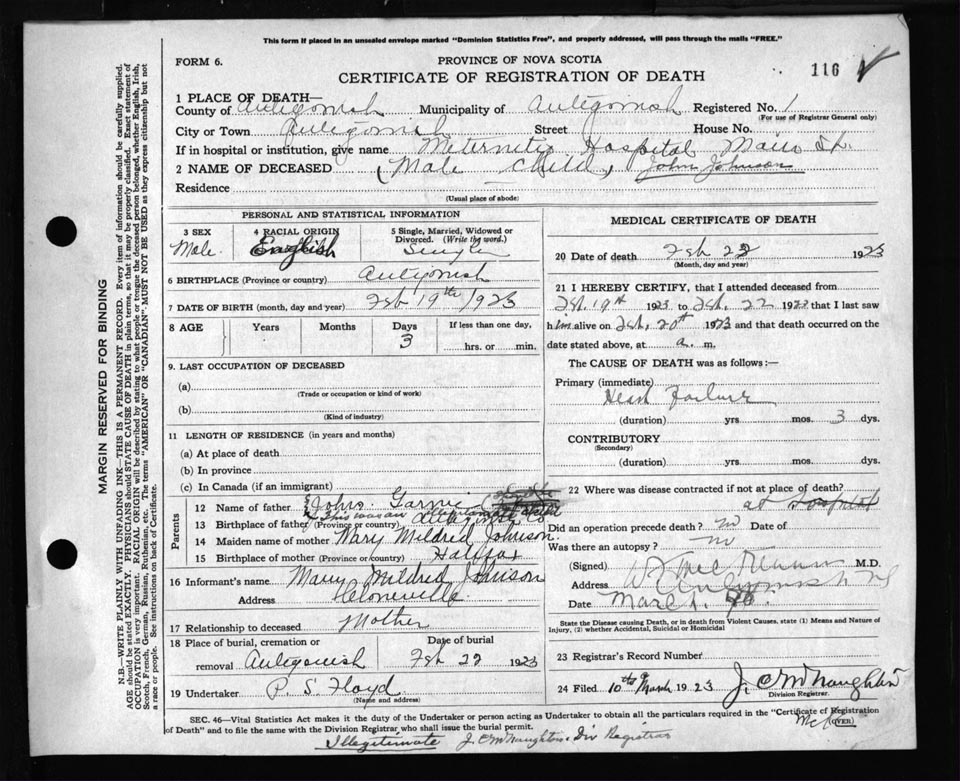 This form if placed in an unsealed envelope marked "Dominion Statistics Free", and properly addressed, will pass through the mails "FREE."
FORM 6.
PROVINCE OF NOVA SCOTIA
CERTIFICATE OF REGISTRATION OF DEATH
116
1 PLACE OF DEATH—
County of Antigonish Municipality of Antigonish Registered No. 1
(For use of Registrar General only)
City or Town Antigonish Street House No.
If in hospital or institution, give name Meternety Hospital Main St.
2 NAME OF DECEASED (Male Child) John Johnson
Residence
(Usual place of abode)
PERSONAL AND STATISTICAL INFORMATION
3 SEX 4 RACIAL ORIGIN 5 Single, Married, Widowed or Divorced. (Write the word.)
Male English Single
6 BIRTHPLACE (Province or country) Antigonish
7 DATE OF BIRTH (month, day and year) Feb 19th 1923
8 AGE Years Months Days If less than one day,
3 hrs. or min.
9. LAST OCCUPATION OF DECEASED
(a)
(Trade or occupation or kind of work)
(b)
(Kind of industry)
11 LENGTH OF RESIDENCE (in years and months)
(a) At place of death
(b) In province
(c) In Canada (if an immigrant)
Parents
12 Name of father John
This was an illegitimate child
13 Birthplace of father (Province or country) Antigonish Co
14 Maiden name of mother Mary Mildred Johnson.
15 Birthplace of mother (Province or country) Halifax
16 Informant's name Mary Mildred Johnson
Address
17 Relationship to deceased Mother
18 Place of burial, cremation or removal Antigonish Date of burial Feb 22 1923
19 Undertaker P. S. Floyd
(Name and address)
MEDICAL CERTIFICATE OF DEATH
20 Date of death Feb 22 1923
(Month, day and year)
21 I HEREBY CERTIFY, that I attended deceased from
Feb. 19th 1923 to Feb. 22 1923 that I last saw
him alive on Feb. 20th 1923 and that death occurred on the
date stated above, at a. m.
The CAUSE OF DEATH was as follows :—
Primary (immediate)
Heart Failure
(duration) yrs mos. 3 dys.
CONTRIBUTORY
(Secondary)
(duration) yrs. mos. dys.
22 Where was disease contracted if not at place of death?
at hospital
Did an operation precede death? no Date of
Was there an autopsy? no
(Signed) M.D.
Address Antigonish NS
Date March 1.
State the Disease causing Death, or in death from Violent Causes, state (1) Means and Nature of Injury, (2) whether Accidental, Suicidal or Homicidal
23 Registrar's Record Number
24 Filed 10th March 1923 J. C. McNaughton
Division Registrar.
SEC. 46—Vital Statistics Act makes it the duty of the Undertaker or person acting as Undertaker to obtain all the particulars required in the "Certificate of Registration
of Death" and to file the same with the Division Registrar who shall issue the burial permit.
(OVER)
Illegitimate J. C. McNaughton Div Registrar
MARGIN RESERVED FOR BINDING
N.B.—WRITE PLAINLY WITH UNFADING INK—THIS IS A PERMANENT RECORD. Every item of information should be carefully supplied.
AGE should be stated EXACTLY. PHYSICIANS should STATE CAUSE OF DEATH in plain terms, so that it may be properly classified. Exact statement of
OCCUPATION is very important. RACIAL ORIGIN will be described by stating to what people or tongue the deceased person belonged, whether English, Irish,
Scotch, French, German, Russian, Ruthenian, etc. The terms "AMERICAN" OR "CANADIAN" MUST NOT BE USED as they express citizenship but not
a race or people. See instructions on back of Certificate.